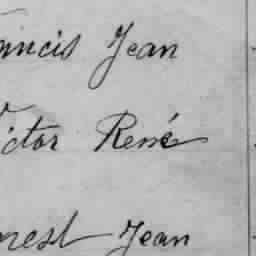 rancis Jean
ictor René
nest Jean